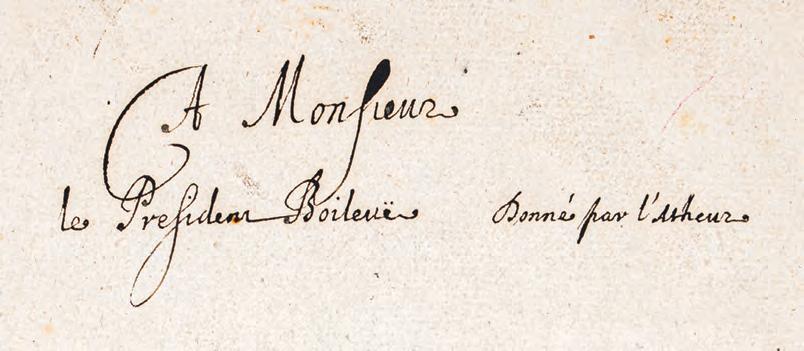 A Monsieur
le President Boileuë Donné par l'Atheur